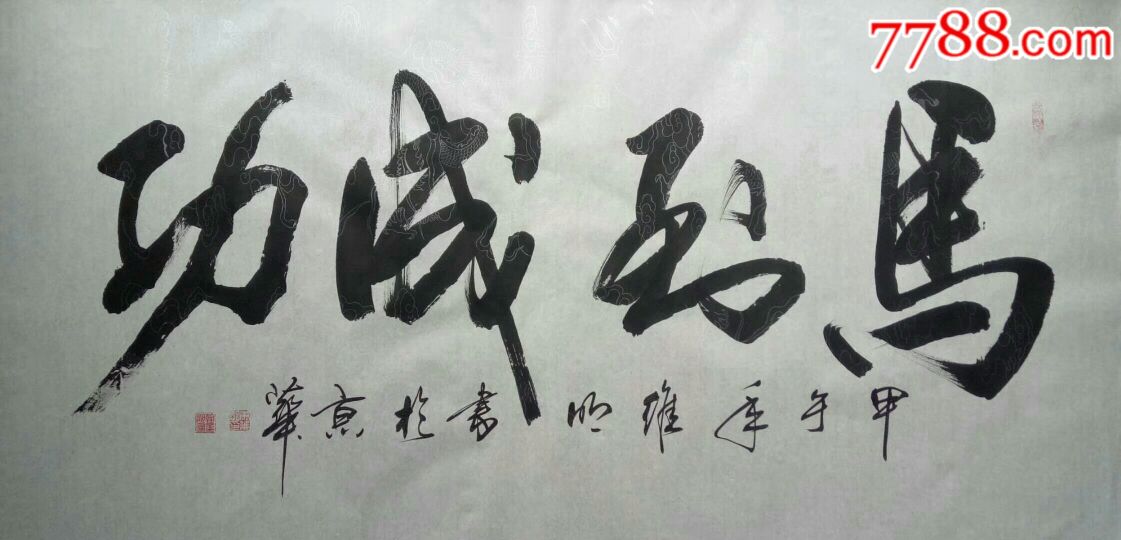 7788.com
馬到成功
甲午年維明書於京華